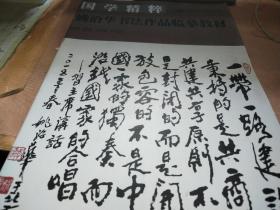 国学精粹
姚治华书法作品临摹教材
一带一路建
秉持的是共商
共建共享原则不
是封闭的而是开
放包容的不是中
国一家的独奏而
沿线国家的合唱
习主席讲话
二〇一五年春 姚治华